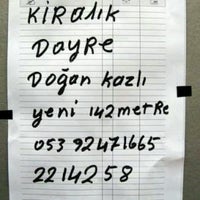 KİRALIK
DAYRE
DOĞAN KAZLI
yeni 142 metRe
053 92471665
2214258